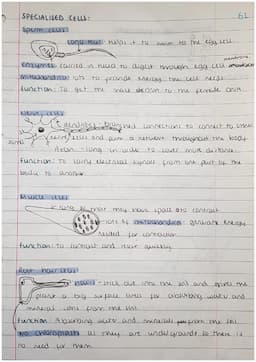 SPECIALISED CELLS: 61
Sperm cells
Long tail: helps it to swim to the egg cell
membrane
enzymes: carried in head to digest through egg cell
mitochondria: lots to provide energy the cell needs
function: To get the male DNA to the female DNA
Nerve cells
dendrites: branched connections to connect to other
nerve cells and form a network throughout the body
Axon: long in order to cover more distance
function: To carry electrical signals from one part of the
body to another
Muscle cells
long so that they have space to contract
lots of mitochondria: generate energy
needed for contraction
function: to contract and relax quickly
Root hair cells
hairs: stick out into the soil and gives the
plant a big surface area for absorbing water and
mineral ions from the soil
function: Absorbing water and minerals from the soil
no chloroplasts as they are underground so there is
no need for them